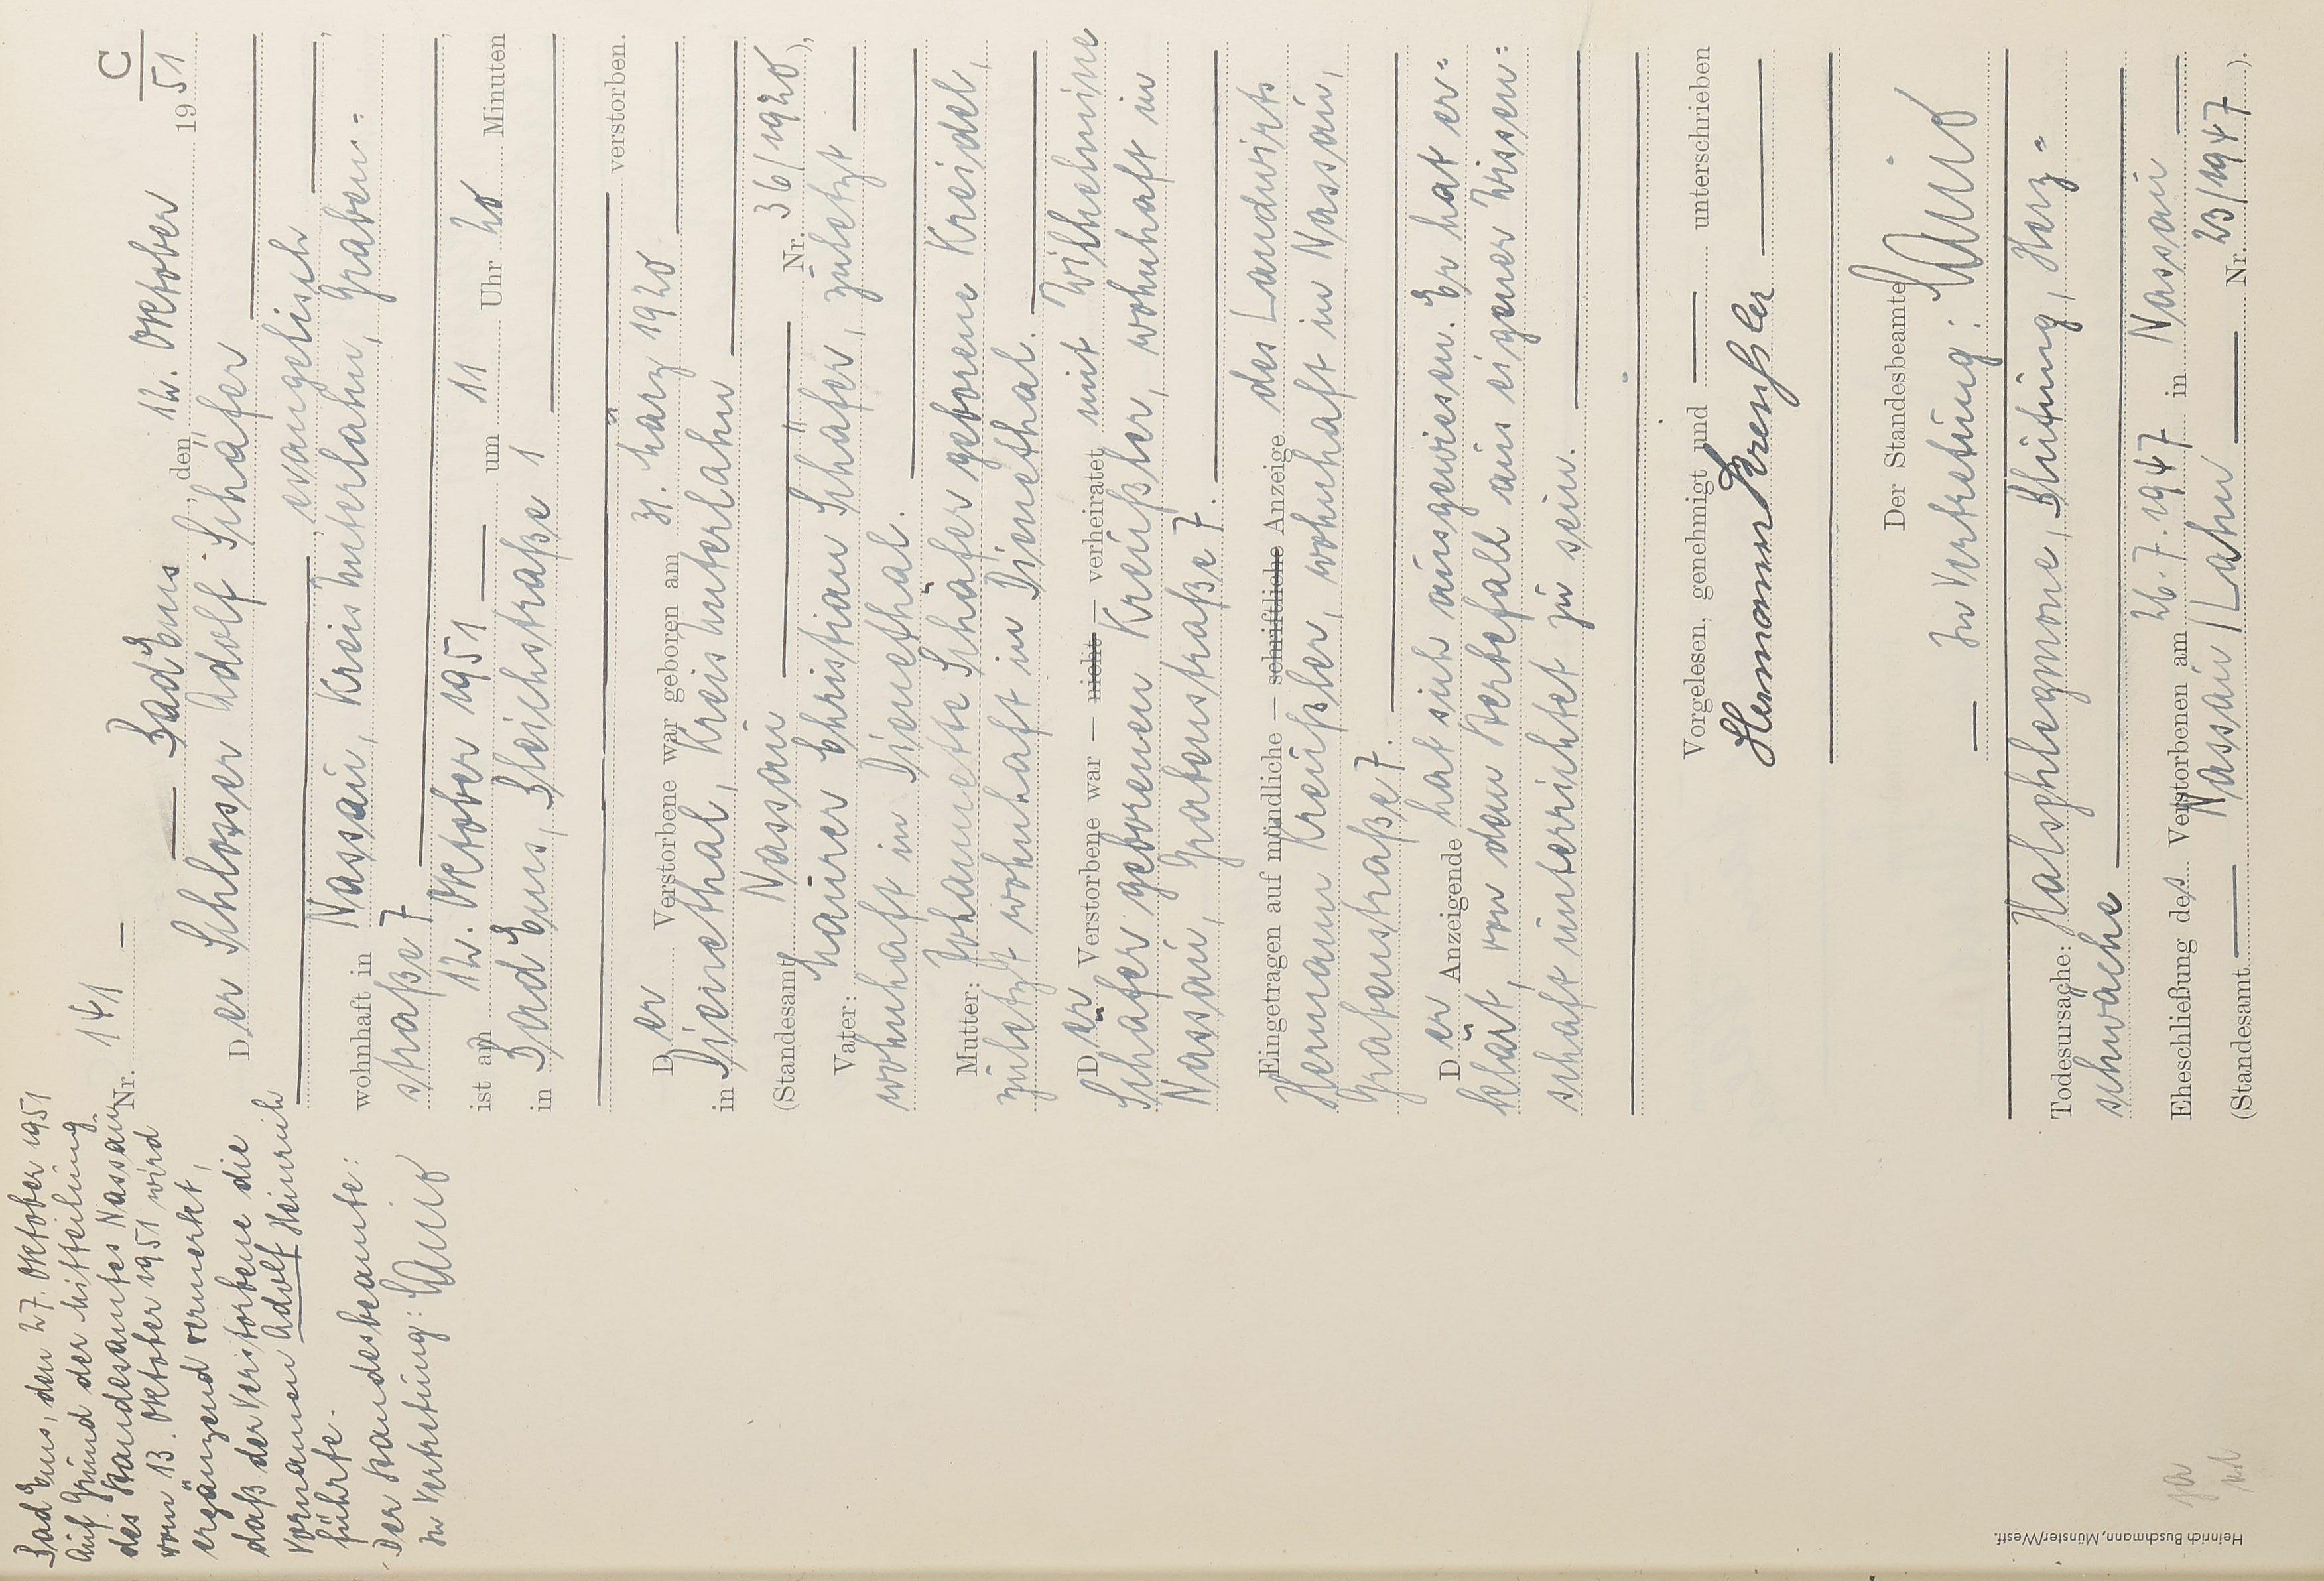 C
Nr. 141 —
— Bad Ems, den 12. Oktober 1951
Der Schlosser Adolf Schäfer
—, evangelisch —,
wohnhaft in Nassau, Kreis Unterlahn, Graben=
straße 7 —,
ist am 12. Oktober 1951 — um 11 Uhr 20 Minuten
in Bad Ems, Bleichstraße 1
verstorben.
Der Verstorbene war geboren am 31. März 1920
in Dienethal, Kreis Unterlahn
(Standesamt Nassau — Nr. 36/1920),
Vater: Maurer Christian Schäfer, zuletzt
wohnhaft in Dienethal.
Mutter: Johannette Schäfer geborene Kreidel,
zuletzt wohnhaft in Dienethal.
Der Verstorbene war — nicht — verheiratet mit Wilhelmine
Schäfer geborenen Kreußler, wohnhaft in
Nassau, Grabenstraße 7.
Eingetragen auf mündliche — schriftliche Anzeige des Landwirts
Hermann Kreußler, wohnhaft in Nassau,
Grabenstraße 7.
Der Anzeigende hat sich ausgewiesen. Er hat er=
klärt, von dem Sterbefall aus eigener Wissen=
schaft unterrichtet zu sein.
Vorgelesen, genehmigt und — unterschrieben
Hermann Kreußler
Der Standesbeamte
In Vertretung:
Todesursache: Halsphlegmone, Blutung, Herz=
schwäche
Eheschließung des Verstorbenen am 26.7.1947 in Nassau
(Standesamt — Nassau/Lahn — Nr. 23/1947).
Bad Ems, den 27. Oktober 1951
Auf Grund der Mitteilung
des Standesamtes Nassau
vom 13. Oktober 1951 wird
ergänzend vermerkt,
daß der Verstorbene die
Vornamen Adolf Heinrich
führte.
Der Standesbeamte:
In Vertretung:
Heinrich Buschmann, Münster/Westf.